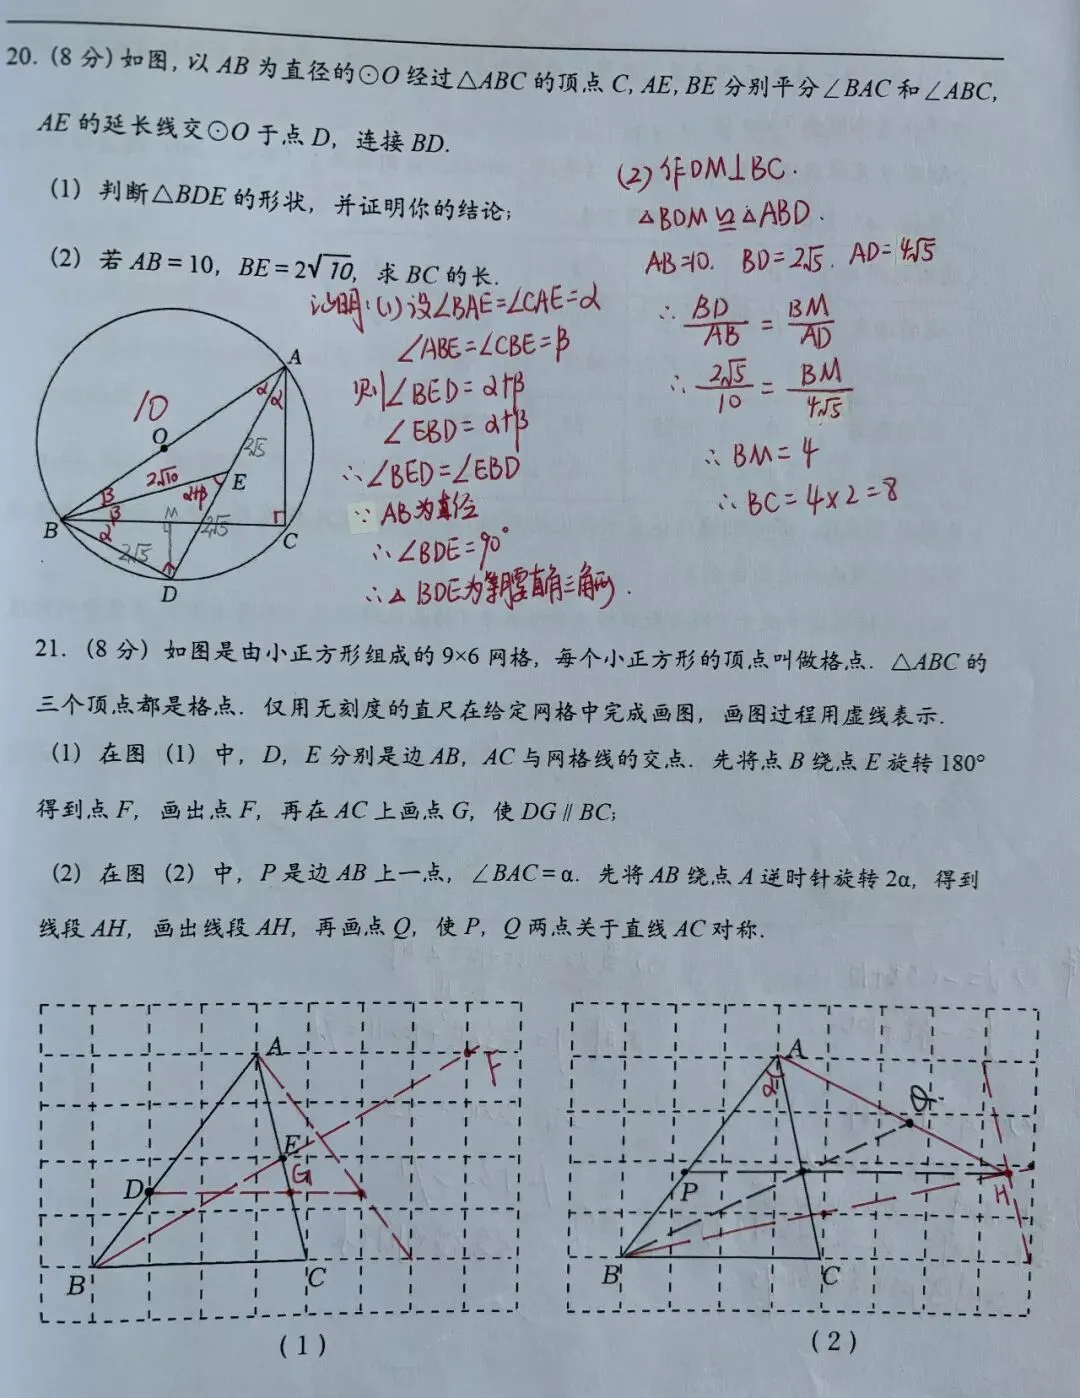 20. (8 分) 如图, 以 AB 为直径的⊙O 经过△ABC 的顶点 C, AE, BE 分别平分∠BAC 和∠ABC,
AE 的延长线交⊙O 于点 D, 连接 BD.
(1) 判断△BDE 的形状, 并证明你的结论;
(2) 若 AB = 10, BE = 2√10, 求 BC 的长.
证明:(1) 设∠BAE=∠CAE=α
∠ABE=∠CBE=β
则∠BED=α+β
∠EBD=α+β
∴∠BED=∠EBD
∵AB为直径
∴∠BDE=90°
∴△BDE为等腰直角三角形.
(2) 作DM⊥BC.
△BDM∽△ABD.
AB=10. BD=2√5. AD=4√5
∴ BD/AB = BM/AD
∴ 2√5/10 = BM/4√5
∴ BM=4
∴ BC=4×2=8
A
α α
10
O
2√5
2√10
E
β
α+β
M
B
β
4
2√5
α
C
2√5
D
21. (8 分) 如图是由小正方形组成的 9×6 网格, 每个小正方形的顶点叫做格点. △ABC 的
三个顶点都是格点. 仅用无刻度的直尺在给定网格中完成画图, 画图过程用虚线表示.
(1) 在图 (1) 中, D, E 分别是边 AB, AC 与网格线的交点. 先将点 B 绕点 E 旋转 180°
得到点 F, 画出点 F, 再在 AC 上画点 G, 使 DG∥BC;
(2) 在图 (2) 中, P 是边 AB 上一点, ∠BAC = α. 先将 AB 绕点 A 逆时针旋转 2α, 得到
线段 AH, 画出线段 AH, 再画点 Q, 使 P, Q 两点关于直线 AC 对称.
A
F
E
D
G
B
C
(1)
A
α
Q
P
H
B
C
(2)